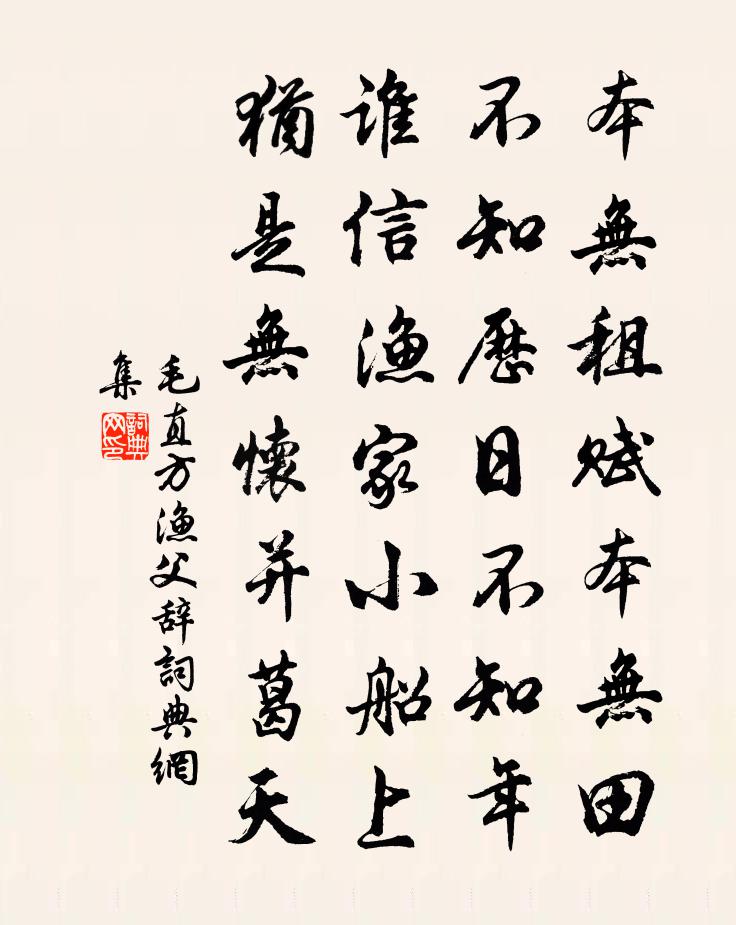 本無租賦本無田
不知歷日不知年
誰信漁家小船上
猶是無懷并葛天
毛直方漁父辞詞典網
集
詞典
网印